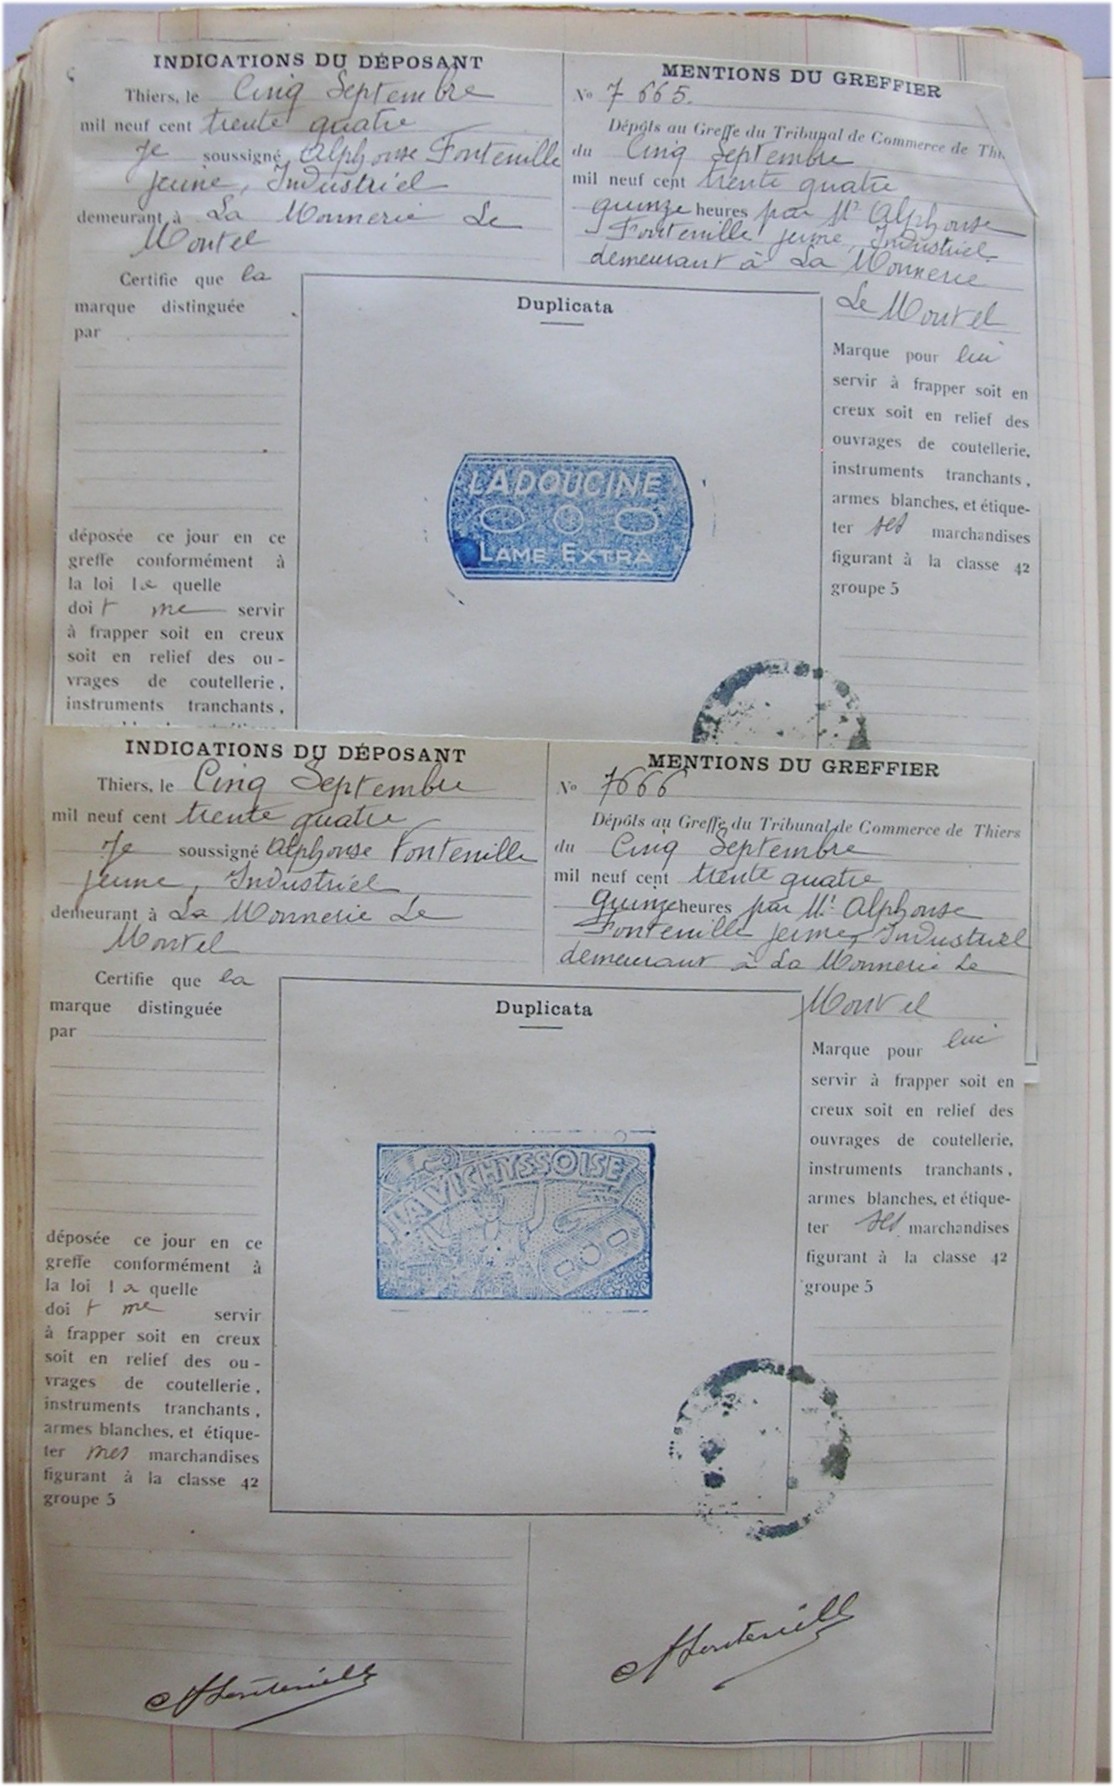 INDICATIONS DU DÉPOSANT
Thiers, le Cinq Septembre
mil neuf cent trente quatre
Je soussigné Alphonse Fontenille
jeune, Industriel
demeurant à La Monnerie Le
Montel
Certifie que la
marque distinguée
par
déposée ce jour en ce
greffe conformément à
la loi la quelle
doit me servir
à frapper soit en creux
soit en relief des ou-
vrages de coutellerie,
instruments tranchants,
MENTIONS DU GREFFIER
No 7665.
Dépôts au Greffe du Tribunal de Commerce de Thi
du Cinq Septembre
mil neuf cent trente quatre
quinze heures par Mr Alphonse
Fontenille jeune, Industriel
demeurant à La Monnerie
Le Montel
Duplicata
LADOUCINE
LAME EXTRA
Marque pour lui
servir à frapper soit en
creux soit en relief des
ouvrages de coutellerie,
instruments tranchants,
armes blanches, et étique-
ter ses marchandises
figurant à la classe 42
groupe 5
INDICATIONS DU DÉPOSANT
Thiers, le Cinq Septembre
mil neuf cent trente quatre
Je soussigné Alphonse Fontenille
jeune, Industriel
demeurant à La Monnerie Le
Montel
Certifie que la
marque distinguée
par
déposée ce jour en ce
greffe conformément à
la loi la quelle
doit me servir
à frapper soit en creux
soit en relief des ou-
vrages de coutellerie,
instruments tranchants,
armes blanches, et étique-
ter mes marchandises
figurant à la classe 42
groupe 5
MENTIONS DU GREFFIER
No 7666
Dépôts au Greffe du Tribunal de Commerce de Thiers
du Cinq Septembre
mil neuf cent trente quatre
quinze heures par Mr Alphonse
Fontenille jeune, Industriel
demeurant à La Monnerie Le
Montel
Duplicata
LA VICHYSSOISE
Marque pour lui
servir à frapper soit en
creux soit en relief des
ouvrages de coutellerie,
instruments tranchants,
armes blanches, et étique-
ter ses marchandises
figurant à la classe 42
groupe 5
A Fontenille
A Fontenille